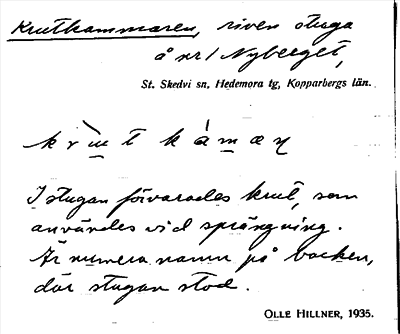 Krutkammaren, riven stuga
å nr 1 Nyberget,
St. Skedvi sn, Hedemora tg, Kopparbergs län.
I stugan förvarades krut, som
användes vid sprängning.
Är numera namn på backen,
där stugan stod.
OLLE HILLNER, 1935.